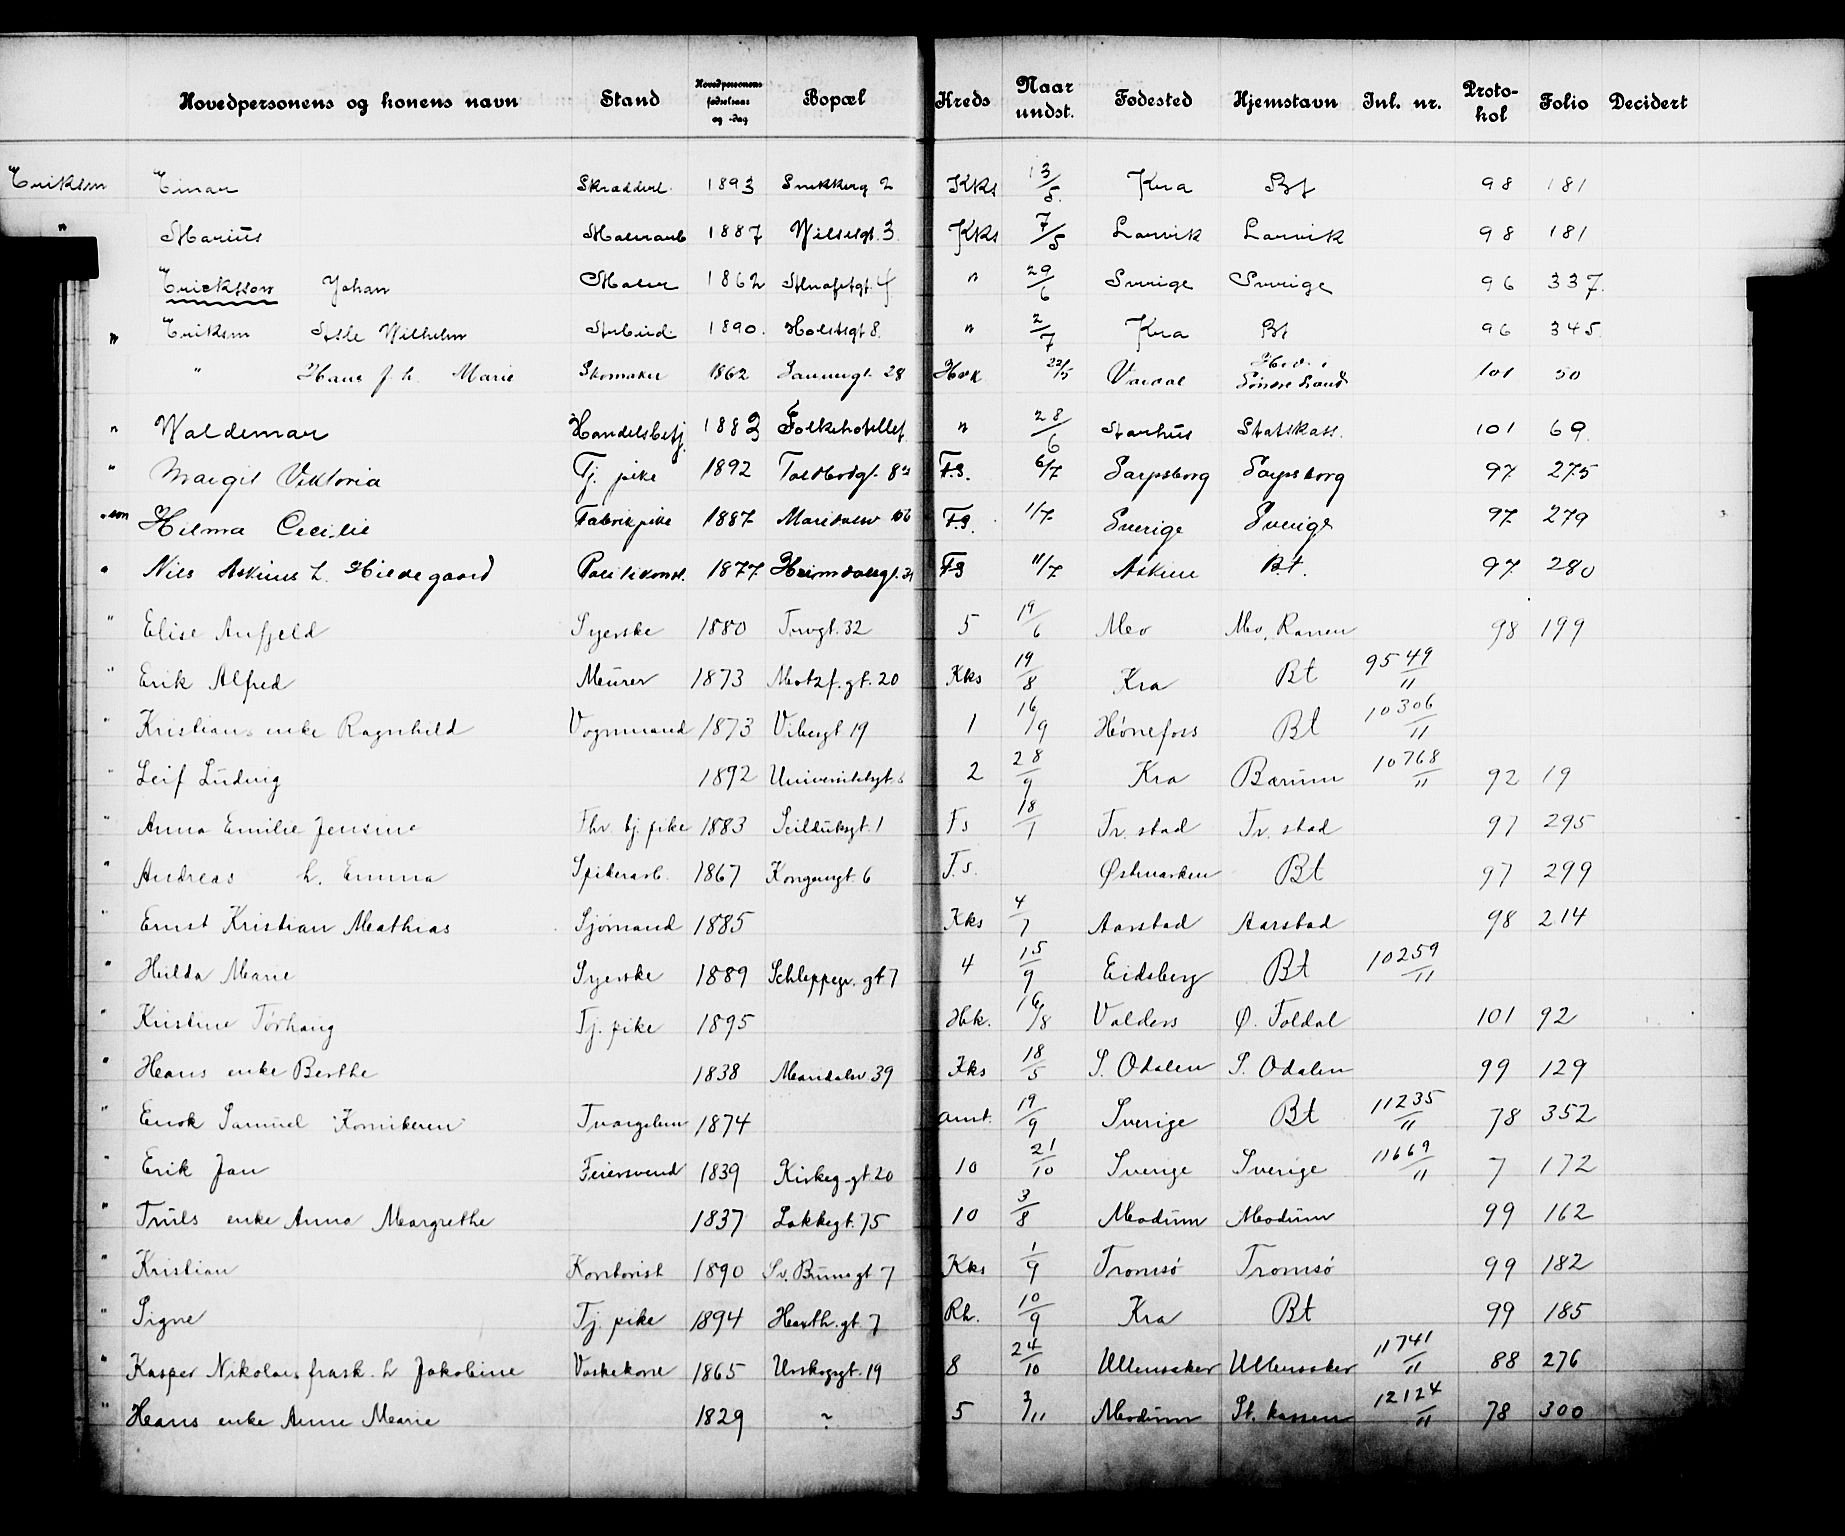 Hovedpersonens og konens navn Stand Hovedpersonens fødselsaar og -dag Bopæl Kreds Naar undst. Fødested Hjemstavn Inl. nr. Protokol Folio Decidert
Eriksen Einar Skrædderl. 1893 2 Kks 13/5 Kra Bt 98 181
" Marius Malerarb 1887 Nilsesgt. 3 Kks 7/5 Larvik Larvik 98 181
Erickson Johan Maler 1862 4 " 29/6 Sverige Sverige 96 337
" Eriksen Wilhelm 1890 Holstsgt 8 " 2/7 Kra Bt 96 345
" Hans f. h. Marie Skomaker 1862 28 Hvk 22/5 Søndre Land 101 50
" Waldemar Handelsbetj. 1883 Folkehotellet " 28/6 Aarhus Statskass. 101 69
" Margit Viktoria Tj. pike 1892 Toldbodgt. 8 F.S. 6/7 Sarpsborg Sarpsborg 97 275
" son Hilma Cecilie Fabrikpike 1887 Maridalsv 106 F.S. 11/7 Sverige Sverige 97 279
" Nils Askim h. Hildegaard Politikonst. 1877 Heimdalsgt. FS 11/7 Askim Bt. 97 280
" Elise Anfjeld Syerske 1880 Torvgt. 32 5 19/6 Mo Mo, Ranen 98 199
" Erik Alfred Murer 1873 Motzf. gt. 20 Kks 19/8 Kra Bt 9549/11
" Kristians enke Ragnhild Vognmand 1873 Vibesgt 19 1 16/9 Hønefoss Bt 10306/11
" Leif Ludvig 1892 Universitetsgt. 2 28/9 Kra Bærum 10768/11 92 19
" Anna Emilie Jensine Fhv. tj. pike 1883 Seilduksgt. 1 Fs 18/7 Fr. stad Fr. stad 97 295
" Andreas h. Emma Spikerarb. 1867 Kongensgt. 6 F.s. Østmarken Bt 97 299
" Ernst Kristian Mathias Sjømand 1885 Kks 4/7 Aarstad Aarstad 98 214
" Hilda Marie Syerske 1889 Schleppegr. gt. 7 4 15/9 Eidsberg Bt 10259/11
" Kristine Tørhaug Tj. pike 1895 Hvk. 16/8 Valders Ø. Toldal 101 92
" Hans enke Berthe 1838 Maridalsv 39 Kks 18/5 S. Odalen S. Odalen 99 129
" Enok Samuel "Komikeren" Tvangslem 1874 amt. 19/9 Sverige Bt 11235/11 78 352
" Erik Jan Feiersvend 1839 Kirkeg. gt. 20 10 21/10 Sverige Sverige 11669/11 7 172
" Truls enke Anna Margrethe 1837 Lakkegt. 75 10 3/8 Modum Modum 99 162
" Kristian Kontorist 1890 Sv. Brunsgt 7 Kks 1/9 Tromsø Tromsø 99 182
" Signe Tj. pike 1894 Hauth. gt. 7 Rh. 10/9 Kra Bt 99 185
" Kasper Nikolais frask. h Jakobine Vaskekone 1865 Urskogsgt. 19 8 24/10 Ullensaker Ullensaker 11741/11 88 276
" Hans enke Anne Marie 1829 ~ 5 3/11 Modum St. kassen 12124/11 78 300